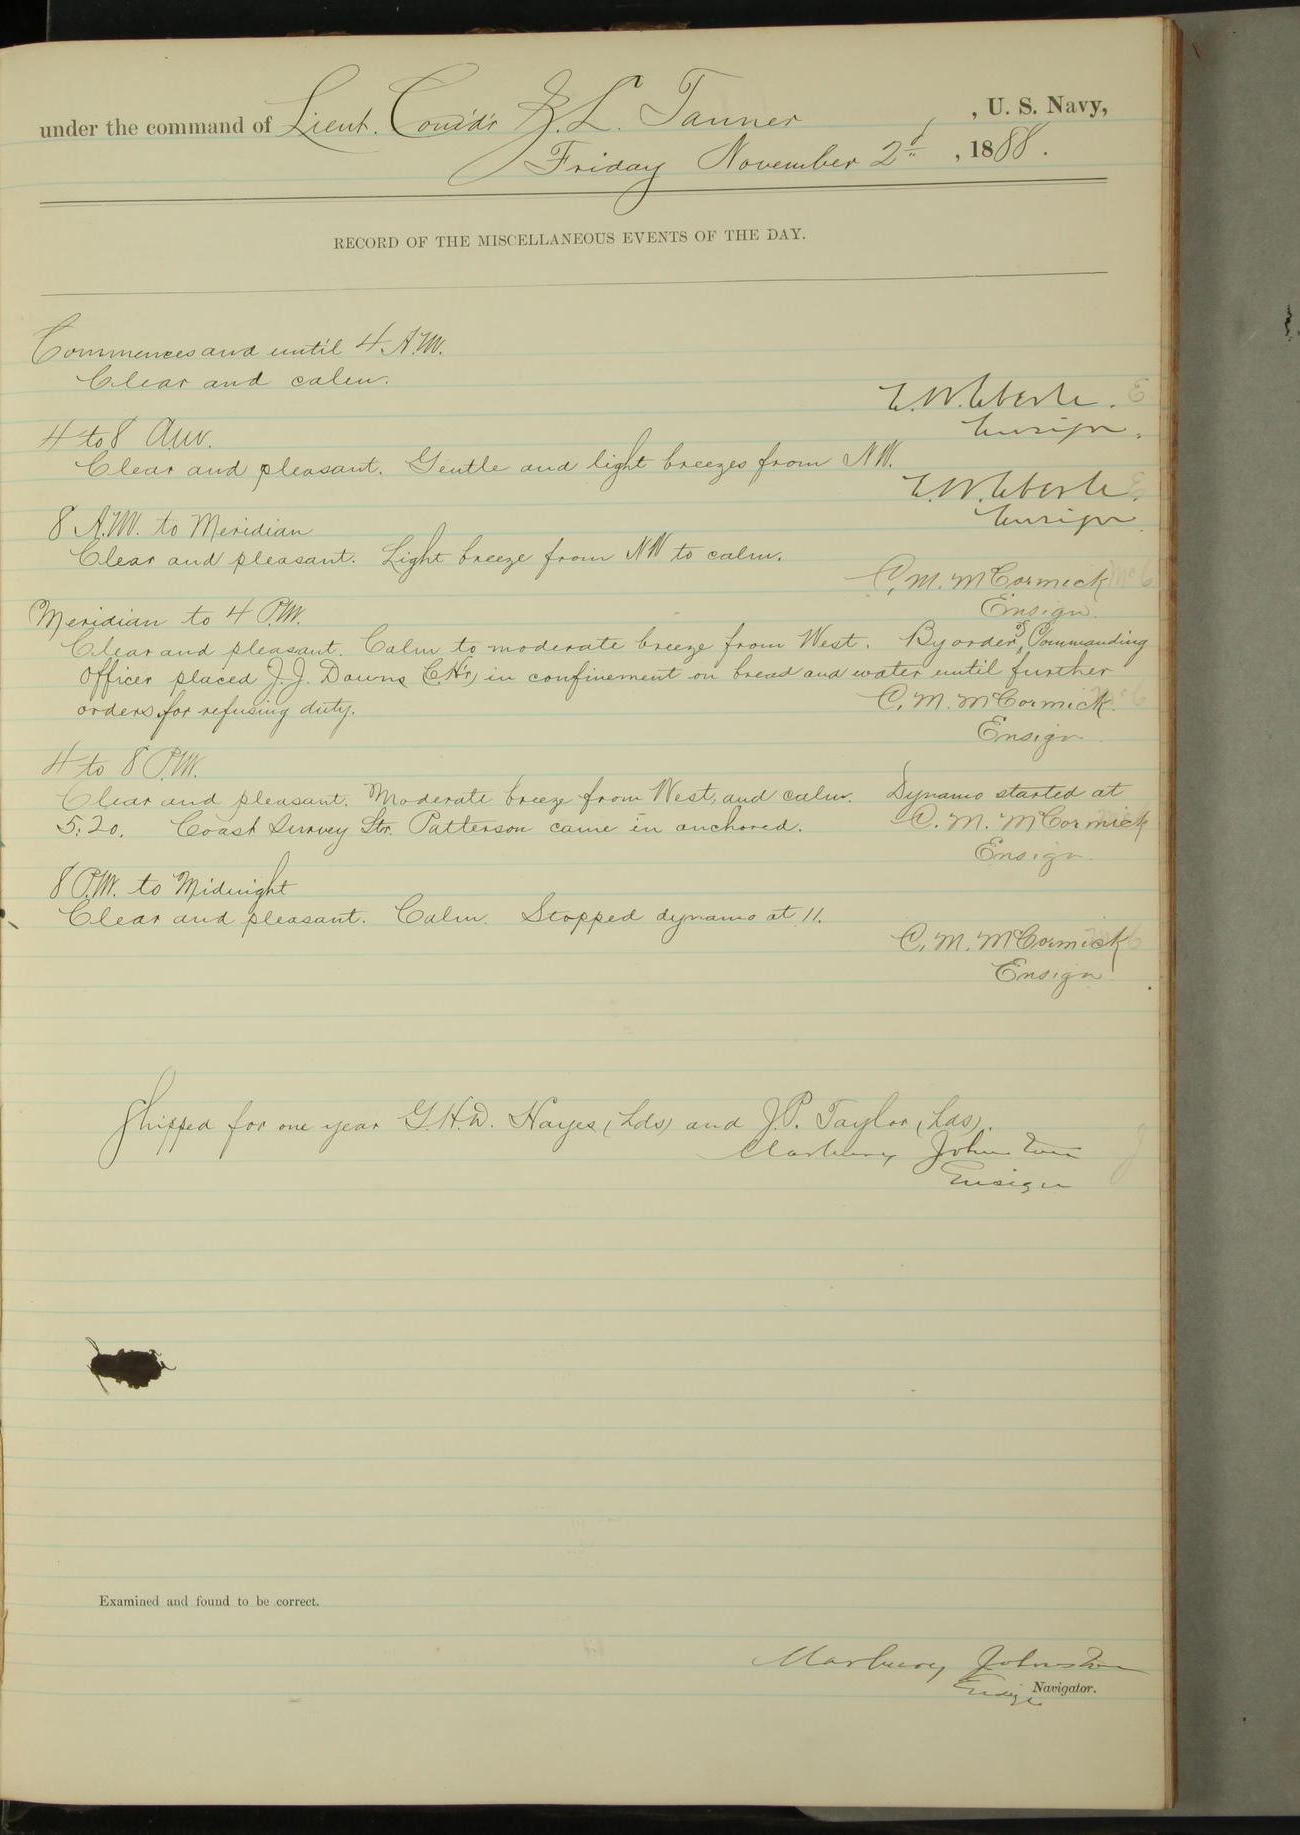 under the command of Lieut. Comd'r Z. L. Tanner, U. S. Navy,
Friday November 2d, 1888.
RECORD OF THE MISCELLANEOUS EVENTS OF THE DAY.
Commences and until 4 A.M.
Clear and calm.
E. W. Eberle.
Ensign.
4 to 8 A.M.
Clear and pleasant. Gentle and light breezes from NW.
E. W. Eberle.
Ensign
8 A.M. to Meridian
Clear and pleasant. Light breeze from NW to calm.
C. M. McCormick
Ensign.
Meridian to 4 P.M.
Clear and pleasant. Calm to moderate breeze from West. By order of Commanding
Officer placed J. J. Downs in confinement on bread and water until further
orders, for refusing duty.
C. M. McCormick.
Ensign
4 to 8 P.M.
Clear and pleasant. Moderate breeze from West, and calm. Dynamo started at
5:20. Coast Survey Str. Patterson came in anchored.
C. M. McCormick
Ensign.
8 P.M. to Midnight
Clear and pleasant. Calm. Stopped dynamo at 11.
C. M. McCormick
Ensign
Shipped for one year G. H. D. Hayes (Lds) and J. P. Taylor (Lds).
Marbury Johnston
Ensign
Examined and found to be correct.
Marbury Johnston
Ensign Navigator.